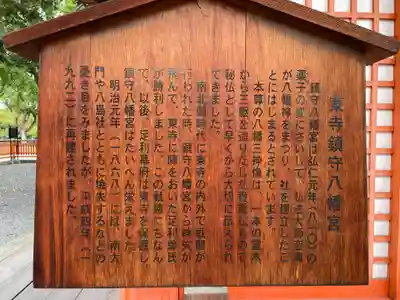 東寺鎮守八幡宮
鎮守八幡宮は弘仁元年(八一〇)の
薬子の変に際して、弘法大師空海
が八幡神をまつり、社を建立したこ
とにはじまるとされています。
本尊の八幡三神像は、一本の霊木
から三躯を造りだした最古級のもので
秘仏として早くから大切に伝えられ
てきました。
南北朝時代に東寺の内外で戦闘が
行われた時、鎮守八幡宮から神矢が
飛んで、東寺に陣をおいた足利尊氏
が勝利しました。この戦勝にちなん
で、以後、足利幕府は東寺を保護し、
鎮守八幡宮はたいへん栄えました。
明治元年(一八六八)には、南大
門や八島社とともに焼失するなどの
憂き目をみましたが、平成四年(一
九九二)に再建されました。